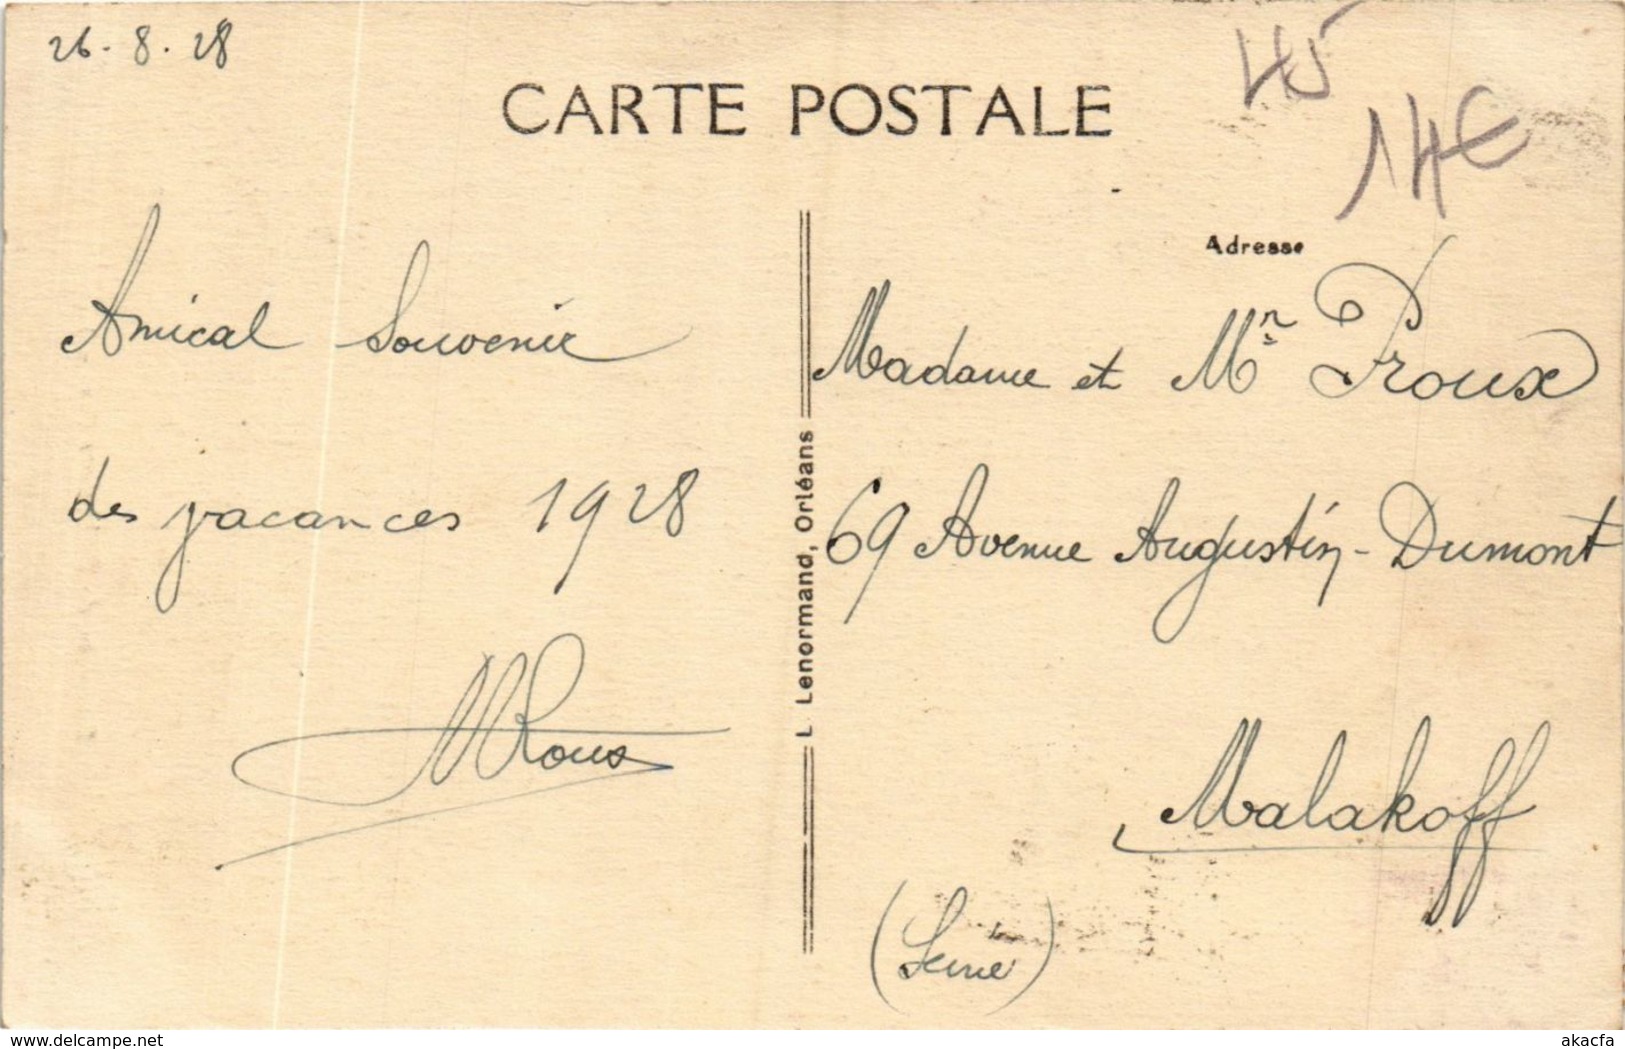 26.8.28
CARTE POSTALE
45
14€
Amical Souvenir
des vacances 1928
MRoux
L Lenormand, Orléans
Adresse
Madame et Mr Proux
69 Avenue Augustin-Dumont
Malakoff
(Seine)
www.delcampe.net
akacfa